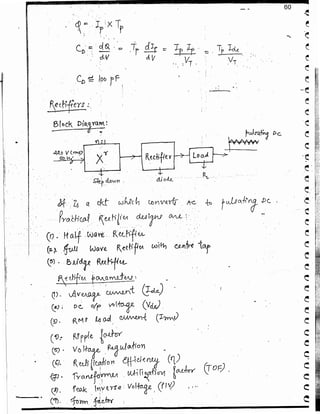 60
q = Ip x Tp
CD = dQ/dV = Tp dIp/dV = Ip Tp/VT = Tp Idc/VT
CD ≅ 100 pF
Rectifiers :
Block Diagram:
n:1
pulsating DC
Xr
Rectifier
Load
Step down
diode
RL
It is a ckt which converts AC to pulsating DC.
Practical Rectifier designs are :
(1). Half wave Rectifier
(2). full wave Rectifier with centre tap
(3). Bridge Rectifier
Rectifier parameters:
(1). Average current (Idc)
(2). DC o/p voltage (Vdc)
(3). RMS load current (Irms)
(4). Ripple factor
(5). Voltage Regulation
(6). Rectification Efficiency (η)
(7). Transformer utilisation factor (TUF).
(8). Peak Inverse Voltage (PIV)
(9). Form factor